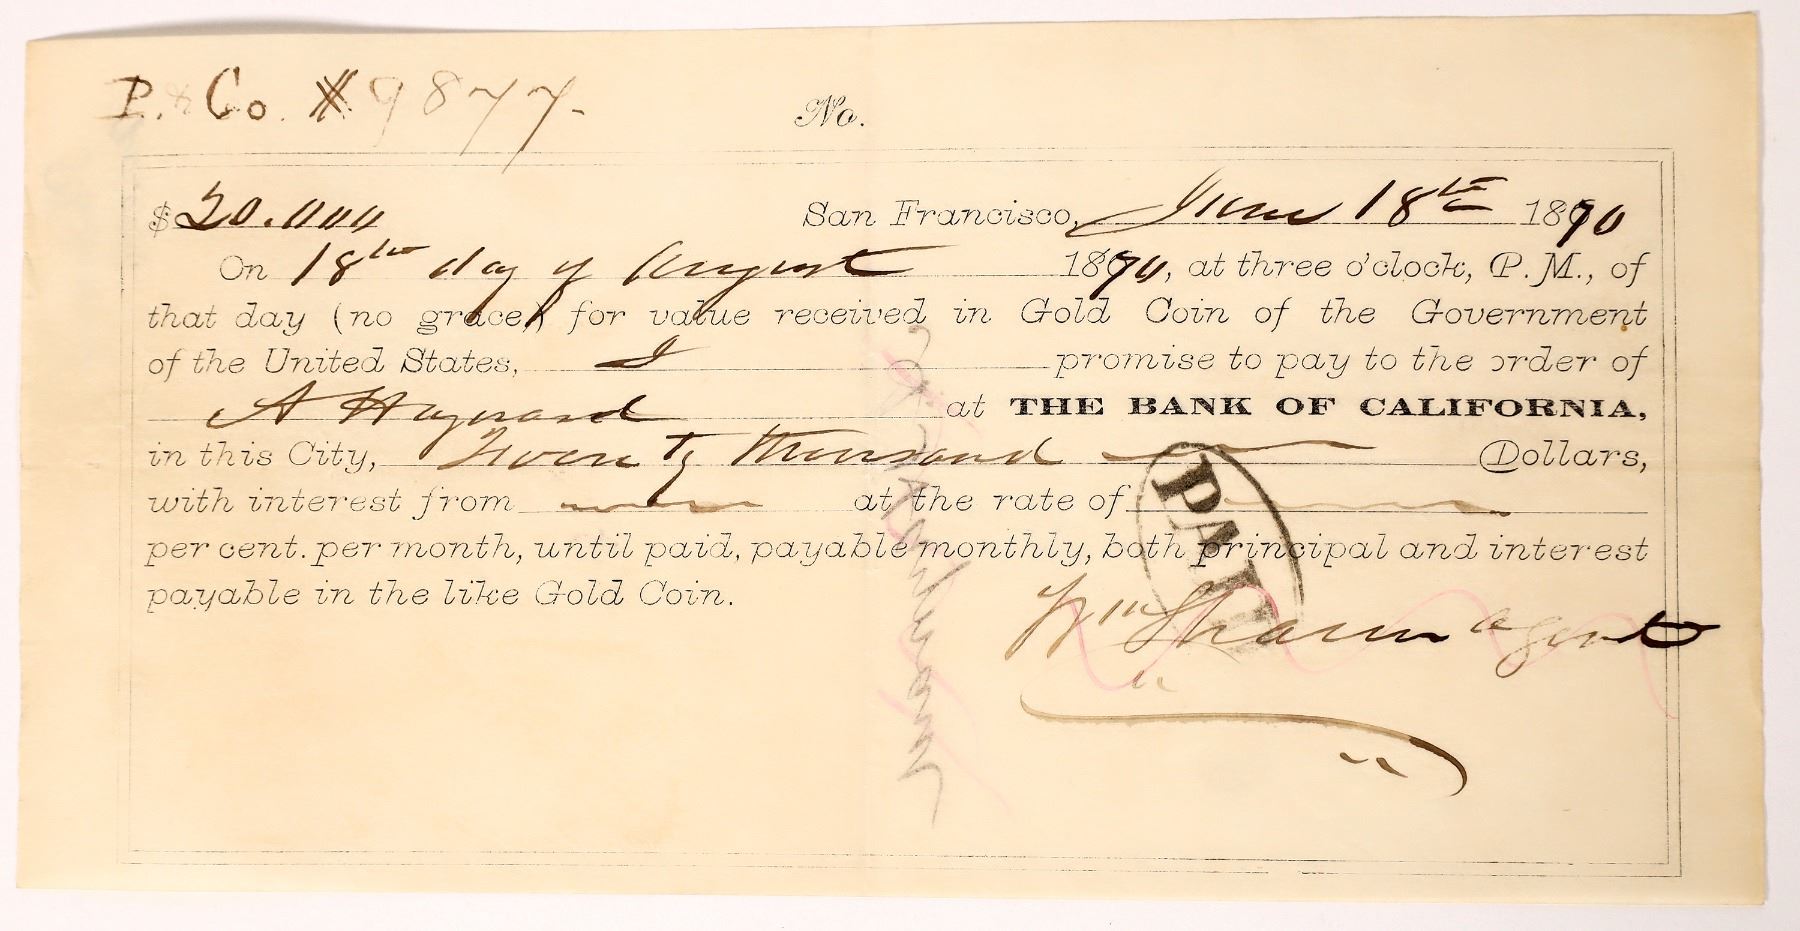 P. & Co. # 9877.
No.
$ 20.000 San Francisco, June 18th 1870
On 18th day of August 1870, at three o'clock, P. M., of
that day (no grace) for value received in Gold Coin of the Government
of the United States, I promise to pay to the order of
A Hayward at THE BANK OF CALIFORNIA,
in this City, Twenty Thousand Dollars,
with interest from at the rate of
per cent. per month, until paid, payable monthly, both principal and interest
payable in the like Gold Coin.
PAID
Wm Sharon agent